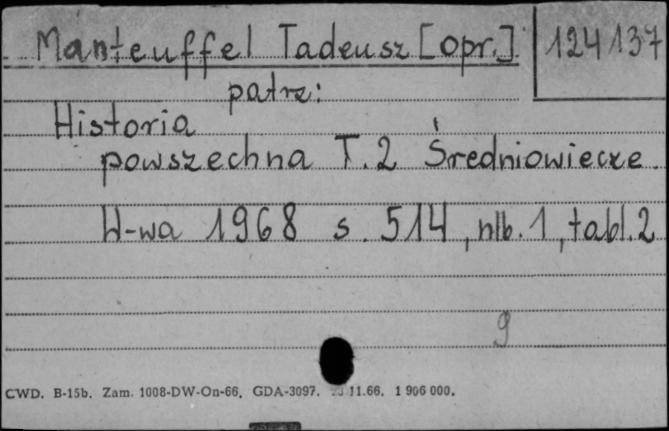 Manteuffel Tadeusz [opr.] 124137
patrz:
Historia
powszechna T.2 Średniowiecze
W-wa 1968 s. 514, nlb. 1, tabl. 2
g
CWD. B-15b. Zam. 1008-DW-On-66. GDA-3097. 11.66. 1 906 000.